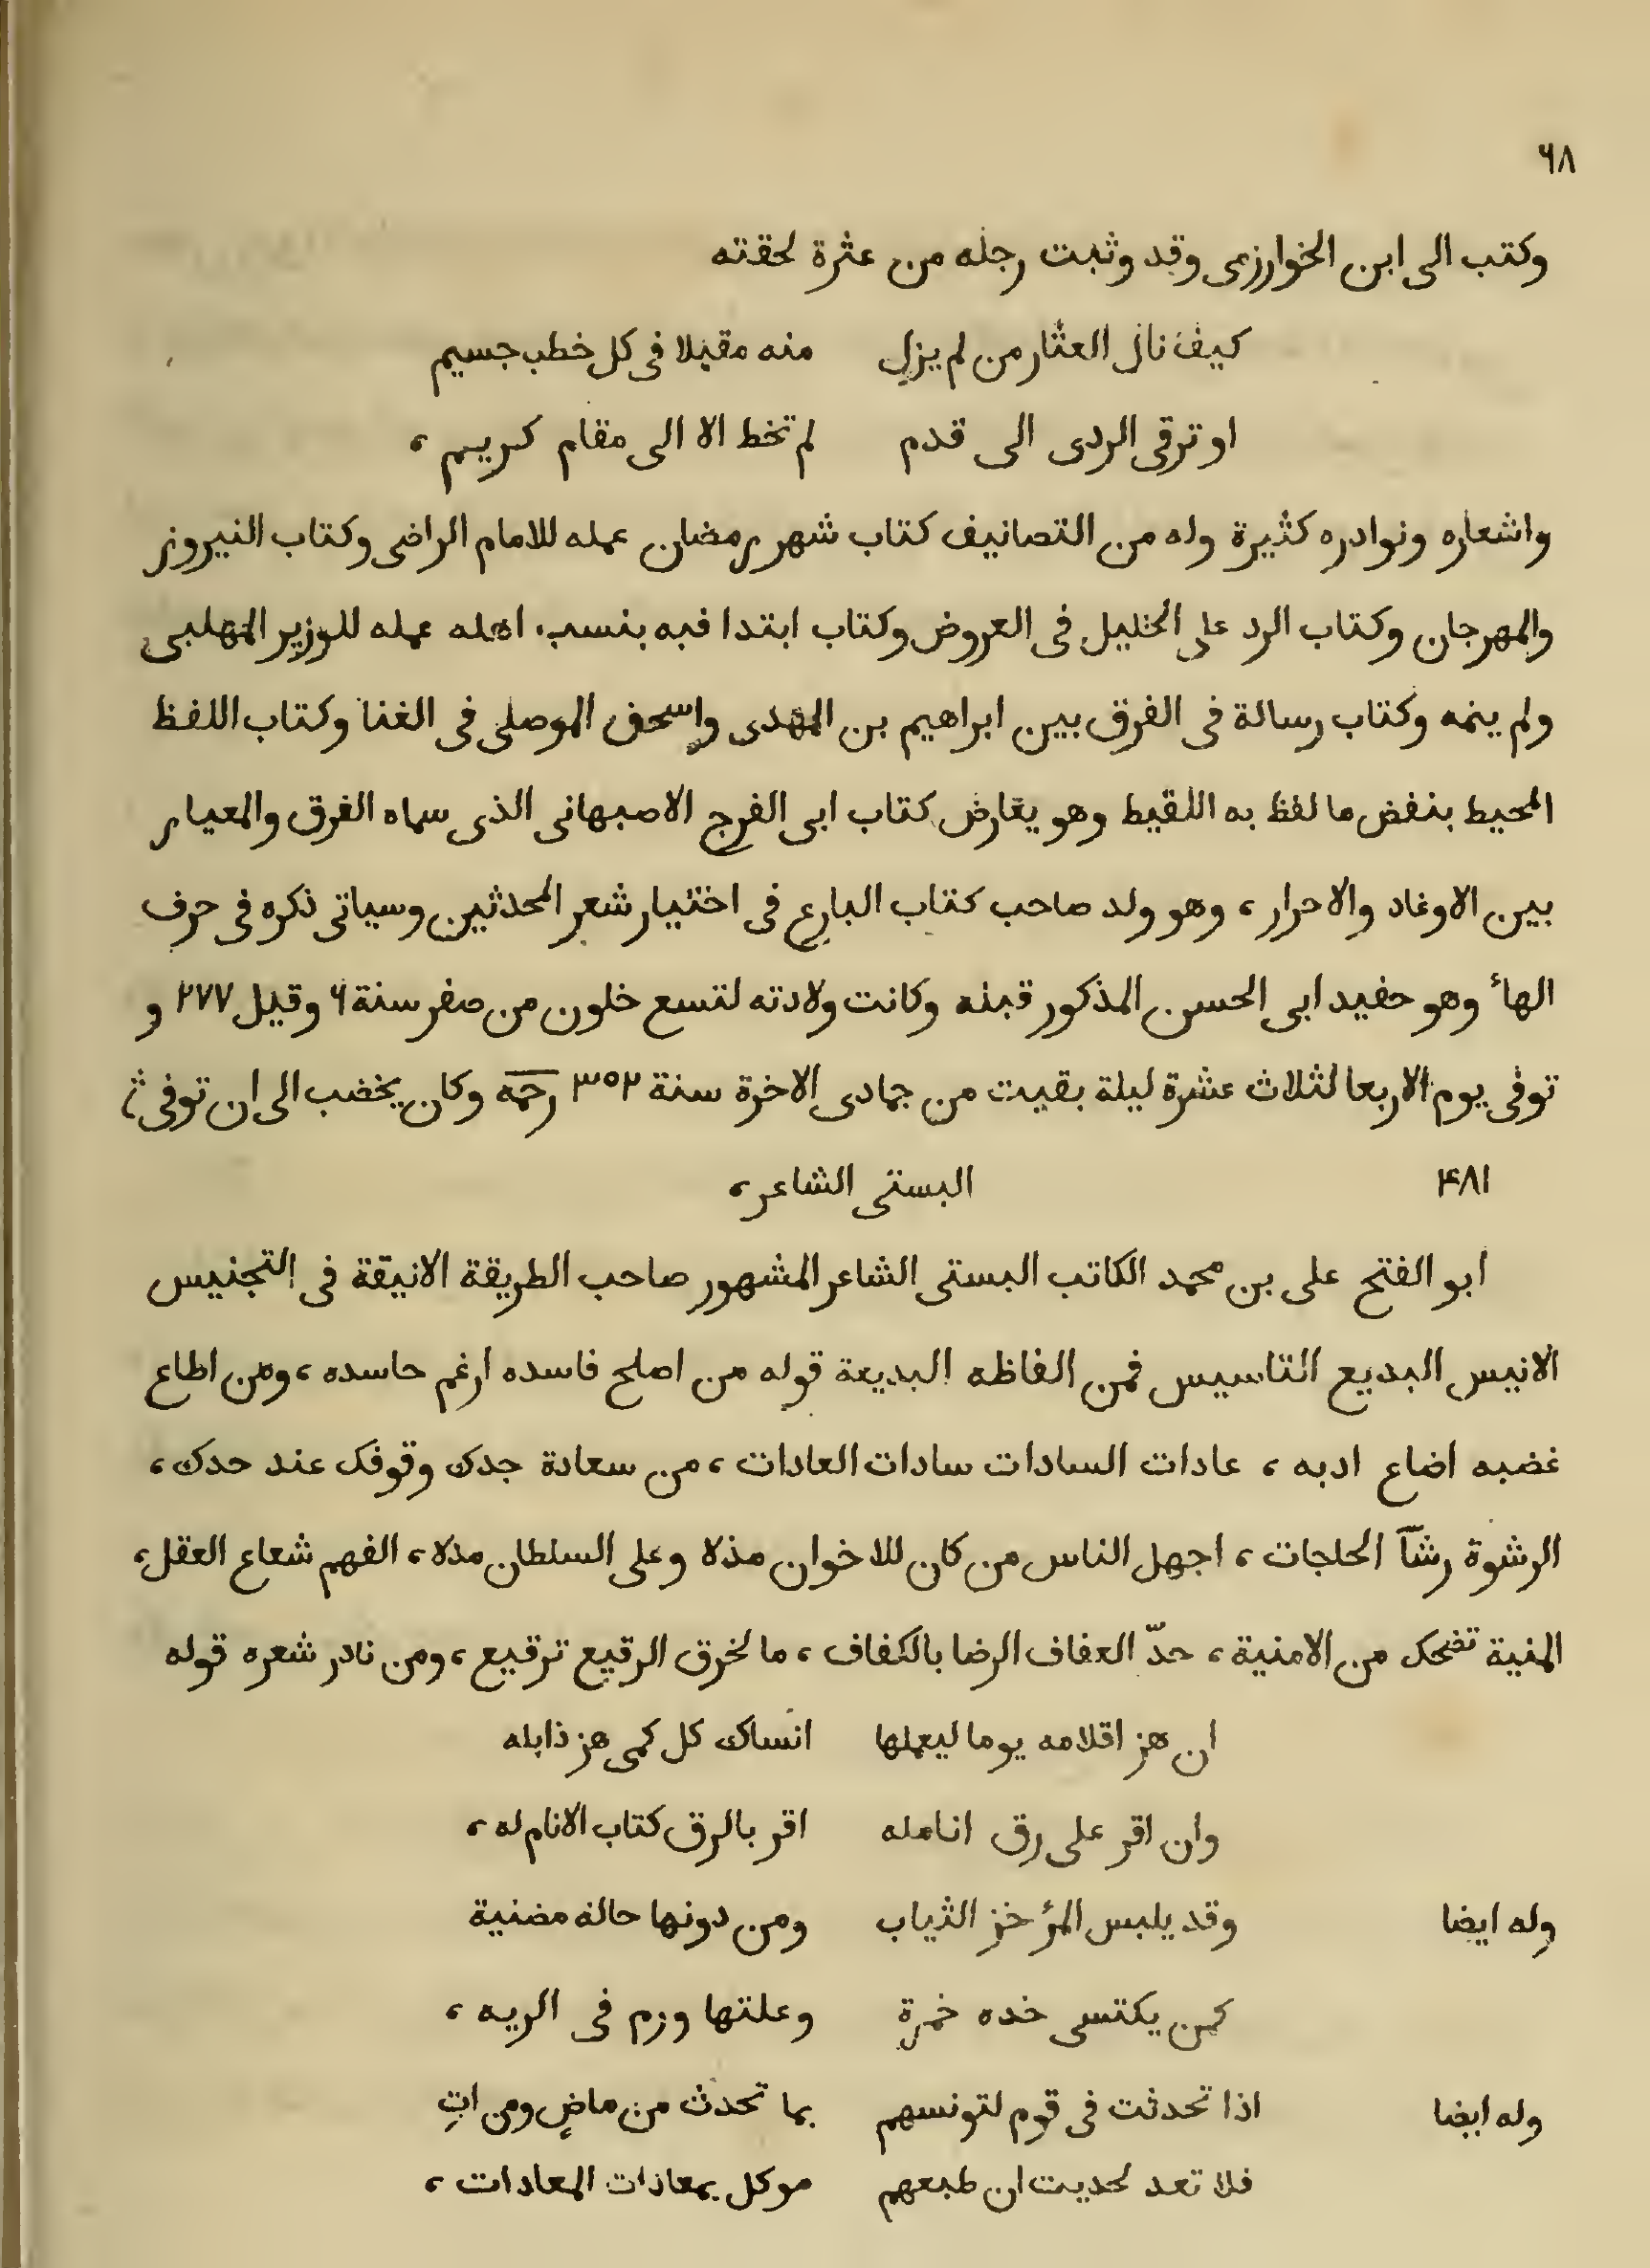 ٦٨
وكتب الى ابن الخوارزمى وقد وثبت رجله من عثرة لحقته
كيف نال العثار من لم يزل منه مقيلا فى كل خطب جسيم
او ترقى الردى الى قدم لم تخط الا الى مقام كريم ،
واشعاره ونوادره كثيرة وله من التصانيف كتاب شهر رمضان عمله للامام الراضى وكتاب النيروز
والمهرجان وكتاب الرد على الخليل فى العروض وكتاب ابتدا فيه بنسب اهله عمله للوزير المهلبى
ولم يتمه وكتاب رسالة فى الفرق بين ابراهيم بن المهدى واسحق الموصلى فى الغنا وكتاب اللفظ
المحيط بنقض ما لفظ به اللقيط وهو يعارض كتاب ابى الفرج الاصبهانى الذى سماه الفرق والمعيار
بين الاوغاد والاحرار ، وهو ولد صاحب كتاب البارع فى اختيار شعر المحدثين وسياتى ذكره فى حرف
الهاء وهو حفيد ابى الحسن المذكور قبله وكانت ولادته لتسع خلون من صفر سنة ٦ وقيل ٢٧٧ و
توفى يوم الاربعا لثلاث عشرة ليلة بقيت من جمادى الاخرة سنة ٣٥٢ رحمه وكان يخضب الى ان توفى ،
٤٨١ البستى الشاعر ،
ابو الفتح على بن محمد الكاتب البستى الشاعر المشهور صاحب الطريقة الانيقة فى التجنيس
الانيس البديع التاسيس فمن الفاظه البديعة قوله من اصلح فاسده ارغم حاسده ، ومن اطاع
غضبه اضاع ادبه ، عادات السادات سادات العادات ، من سعادة جدك وقوفك عند حدك ،
الرشوة رشآ الحاجات ، اجهل الناس من كان للاخوان مذلا وعلى السلطان مدلا ، الفهم شعاع العقل ،
المنية تضحك من الامنية ، حدّ العفاف الرضا بالكفاف ، ما لخرق الرقيع ترقيع ، ومن نادر شعره قوله
ان هز اقلامه يوما ليعملها انساك كل كمى هز ذابله
وان اقر على رق انامله اقر بالرق كتاب الانام له ،
وله ايضا وقد يلبس المرء خز الثياب ومن دونها حالة مضنية
كمن يكتسى خده حمرة وعلتها ورم فى الريه ،
وله ايضا اذا تحدثت فى قوم لتونسهم بما تحدث من ماضٍ ومن اتِ
فلا تعد لحديث ان طبعهم موكل بمعادات المعادات ،